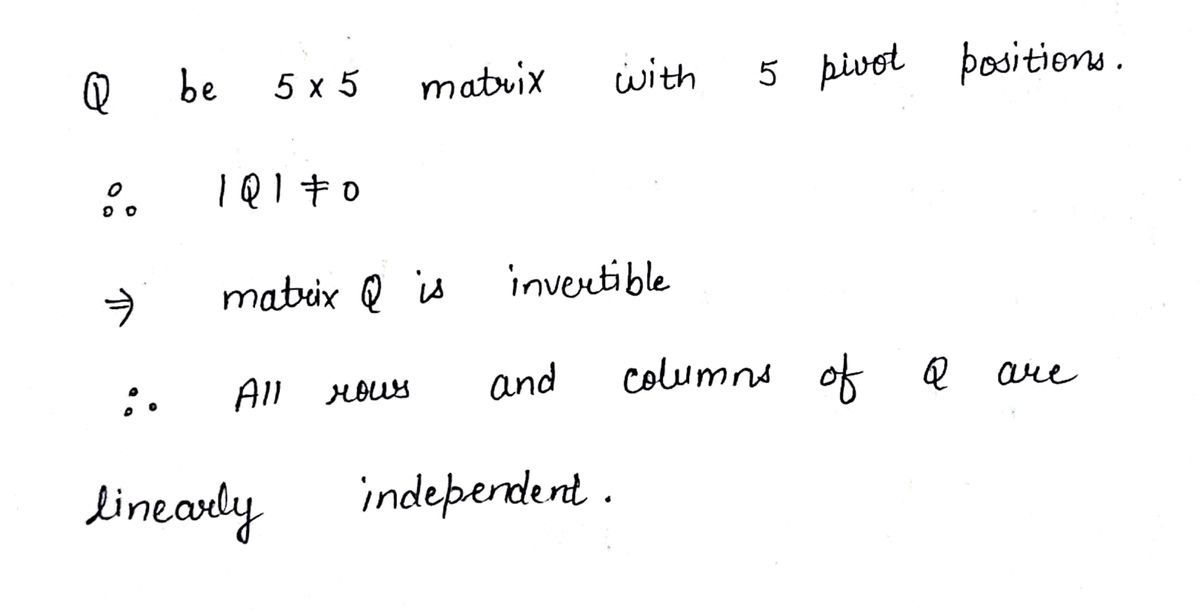 Q be 5 x 5 matrix with 5 pivot positions.
∴ |Q| ≠ 0
⇒ matrix Q is invertible
∴ All rows and columns of Q are
linearly independent.